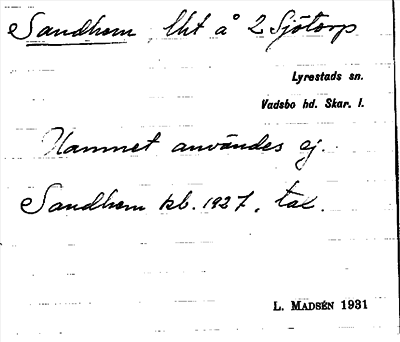 Sandhem, lht å 2 Sjötorp
Lyrestads sn.
Vadsbo hd. Skar. l.
Namnet användes ej.
Sandhem kb. 1927, tax.
L. MADSÉN 1931